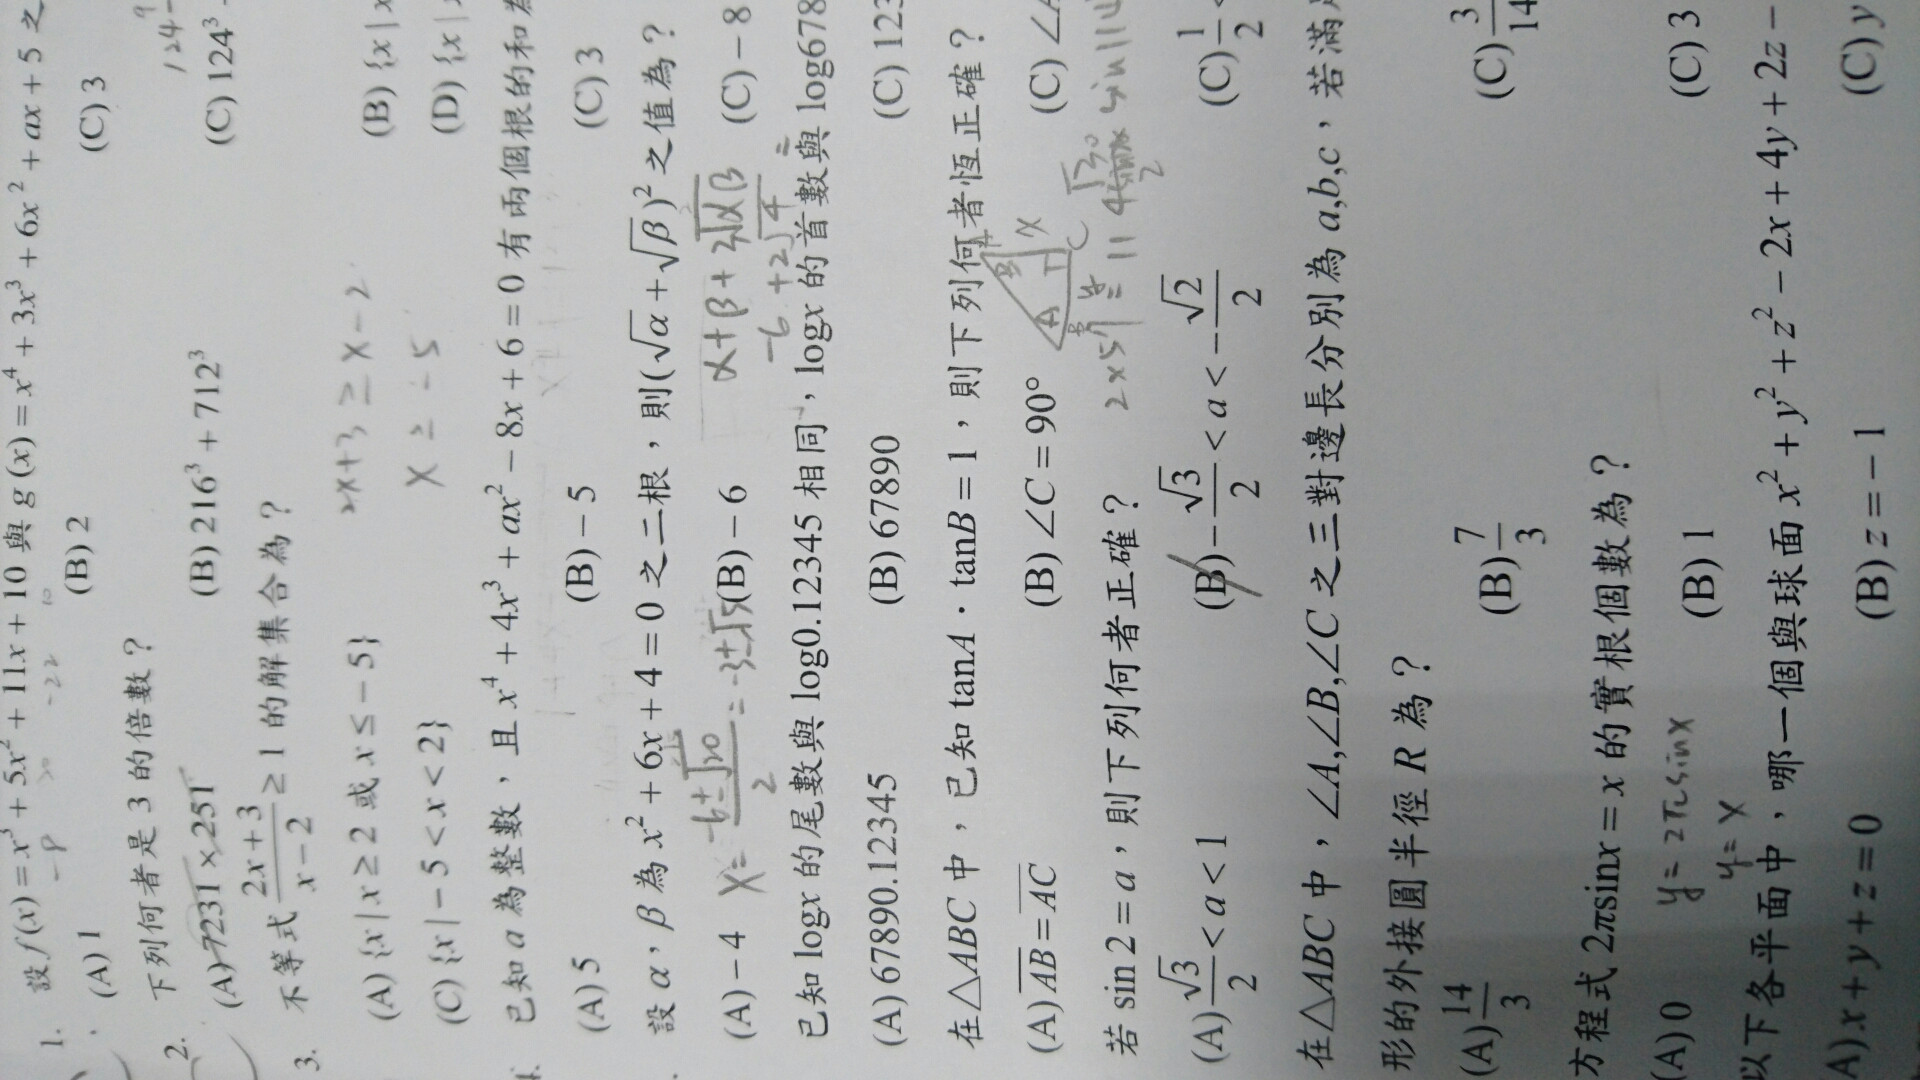 1. 設 f(x) = x³ + 5x² + 11x + 10 與 g(x) = x⁴ + 3x³ + 6x² + ax + 5 之
(A) 1 (B) 2 (C) 3
2. 下列何者是 3 的倍數？
(A) 7231 × 251 (B) 216³ + 712³ (C) 124³
3. 不等式 (2x+3)/(x−2) ≥ 1 的解集合為？
2x+3 ≥ x−2
(A) {x | x ≥ 2 或 x ≤ −5} (B) {x |
x ≥ −5
(C) {x | −5 < x < 2} (D) {x |
已知 a 為整數，且 x⁴ + 4x³ + ax² − 8x + 6 = 0 有兩個根的和為
(A) 5 (B) −5 (C) 3
設 α，β 為 x² + 6x + 4 = 0 之二根，則 (√α + √β)² 之值為？
(A) −4 (B) −6 (C) −8
已知 logx 的尾數與 log0.12345 相同，logx 的首數與 log678
(A) 67890.12345 (B) 67890 (C) 123
在 △ABC 中，已知 tanA · tanB = 1，則下列何者恆正確？
(A) AB = AC (B) ∠C = 90° (C) ∠A
若 sin 2 = a，則下列何者正確？
(A) √3/2 < a < 1 (B) −√3/2 < a < −√2/2 (C) 1/2 <
在 △ABC 中，∠A,∠B,∠C 之三對邊長分別為 a,b,c，若滿足
形的外接圓半徑 R 為？
(A) 14/3 (B) 7/3 (C) 3/14
方程式 2πsinx = x 的實根個數為？
(A) 0 (B) 1 (C) 3
y = 2π sinx
y = x
以下各平面中，哪一個與球面 x² + y² + z² − 2x + 4y + 2z −
(A) x + y + z = 0 (B) z = −1 (C) y